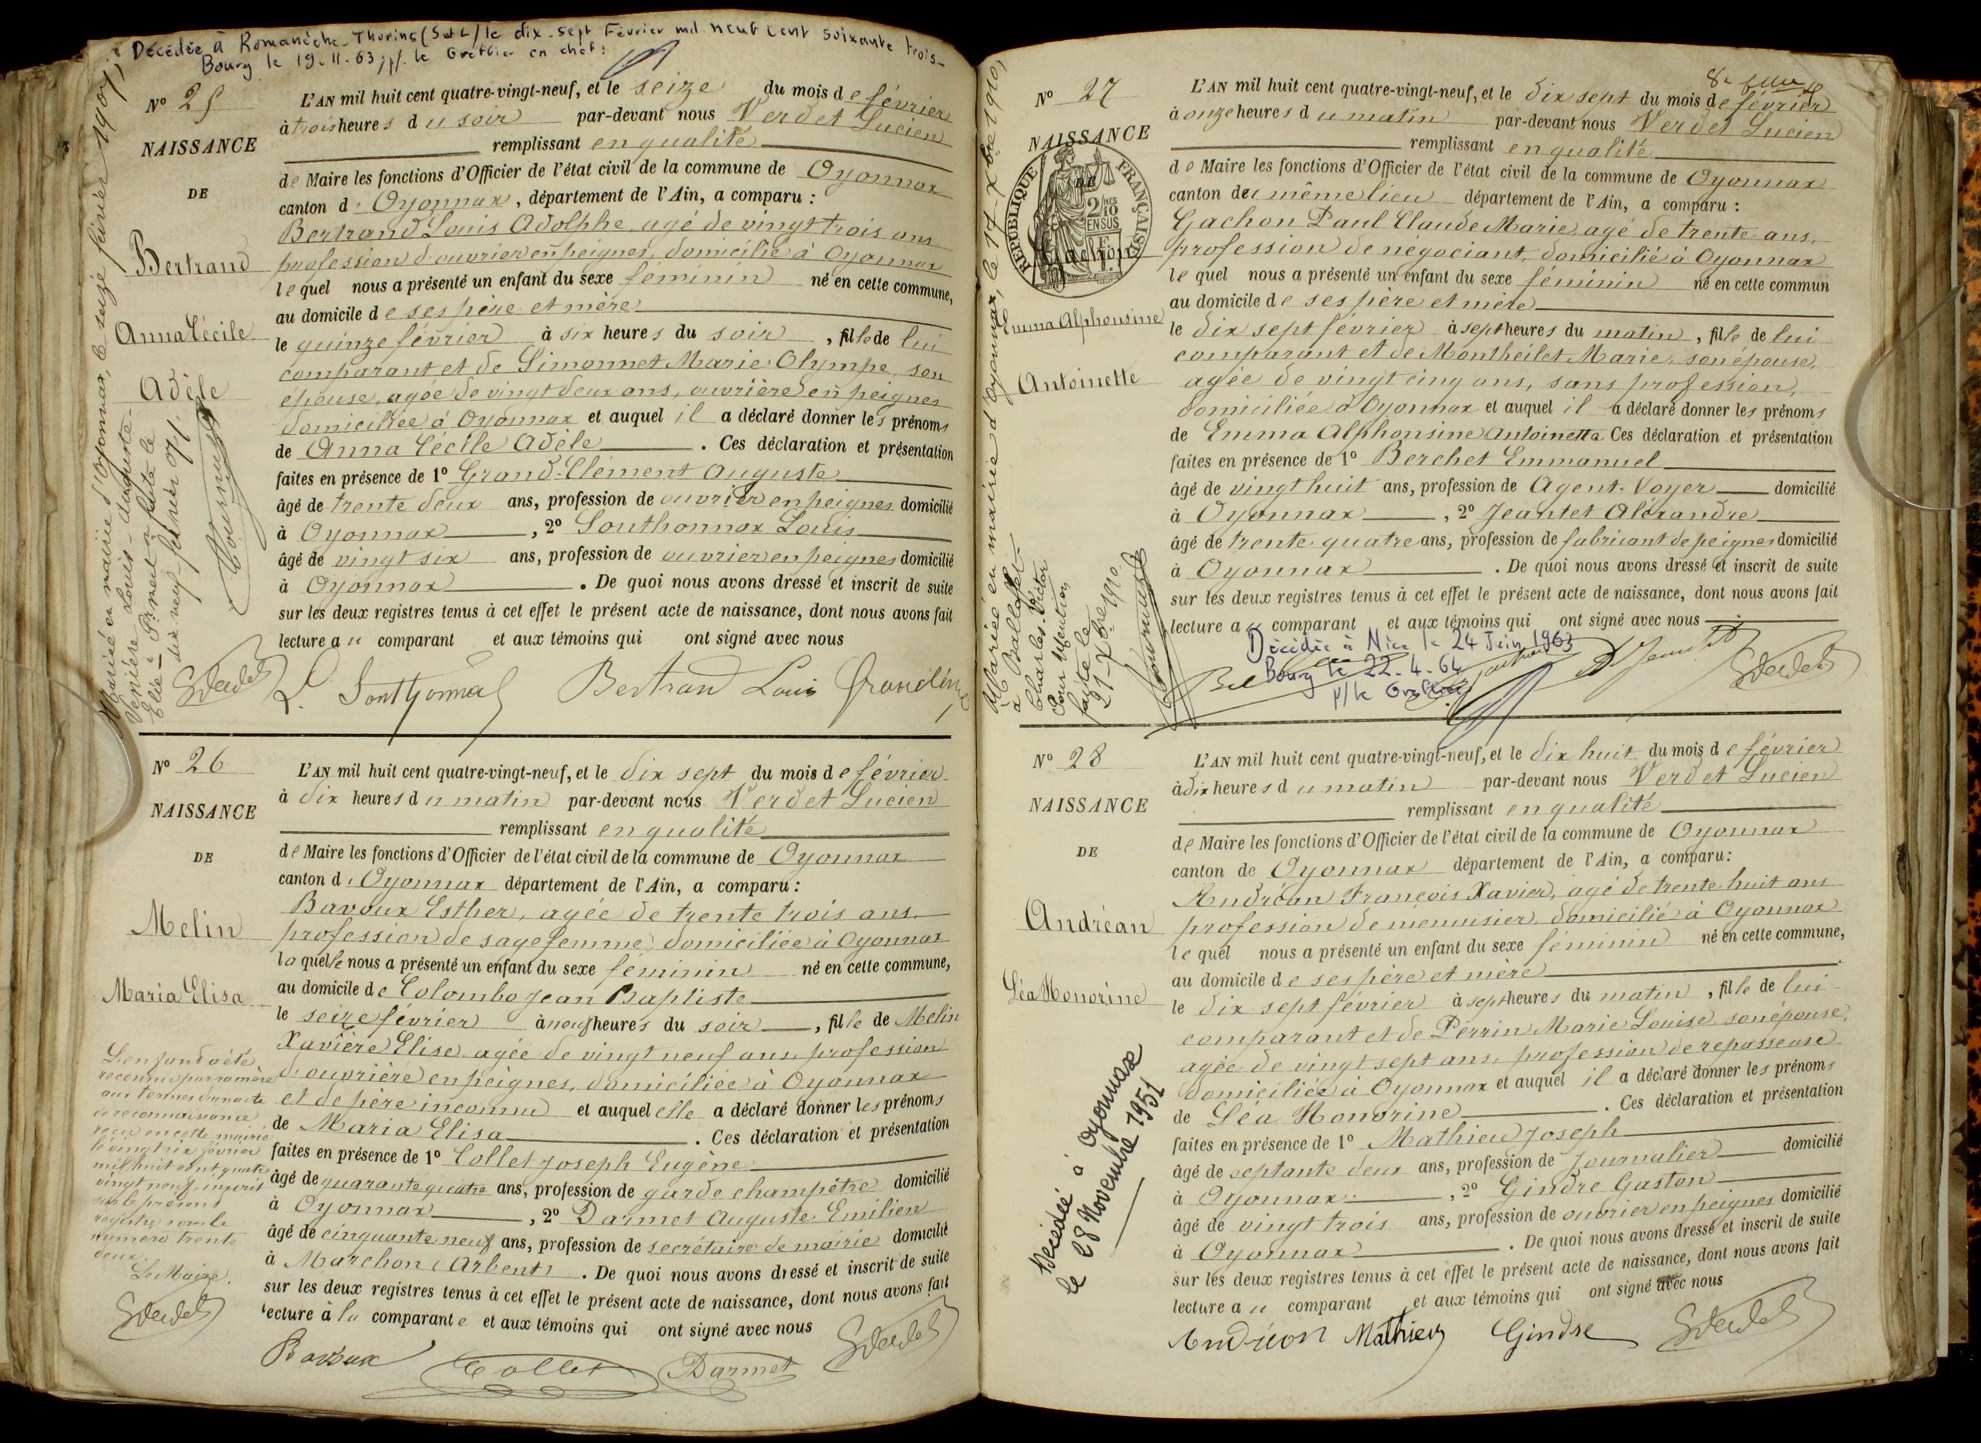 Décédée à Romanèche-Thorins (S et L) le dix-sept Février mil neuf cent soixante trois
Bourg le 19-11-63 p/. le Greffier en chef:
N° 25
NAISSANCE
DE
Bertrand
Anna Cécile
Adèle
Mariée en mairie d'Oyonnax, le seize février 1907,
Louis-Auguste
dix neuf-février 07/.
L'AN mil huit cent quatre-vingt-neuf, et le seize du mois de février
à trois heures du soir par-devant nous Verdet Lucien
remplissant en qualité
de Maire les fonctions d'Officier de l'état civil de la commune de Oyonnax
canton d' Oyonnax, département de l'Ain, a comparu :
Bertrand Louis Adolphe, agé de vingt trois ans
profession d'ouvrier en peignes, domicilié à Oyonnax
lequel nous a présenté un enfant du sexe féminin né en cette commune,
au domicile de ses père et mère
le quinze février à six heures du soir, fille de lui
comparant et de Simonnet Marie Olympe son
épouse, agée de vingt deux ans, ouvrière en peignes
domiciliée à Oyonnax et auquel il a déclaré donner les prénoms
de Anna Cécile Adèle. Ces déclaration et présentation
faites en présence de 1° Grand-Clément Auguste
âgé de trente deux ans, profession de ouvrier en peignes domicilié
à Oyonnax, 2° Sonthonnax Louis
âgé de vingt six ans, profession de ouvrier en peignes domicilié
à Oyonnax. De quoi nous avons dressé et inscrit de suite
sur les deux registres tenus à cet effet le présent acte de naissance, dont nous avons fait
lecture au comparant et aux témoins qui ont signé avec nous
L. Sonthonnax Bertrand Louis
N° 26
NAISSANCE
DE
Melin
Maria Elisa
L'enfant a été
reconnu par sa mère
aux termes d'un acte
de reconnaissance
reçu en cette mairie
le vingt six février
mil huit cent quatre
vingt neuf, inscrit
sur le présent
registre sous le
numéro trente
deux.
Le Maire,
L'AN mil huit cent quatre-vingt-neuf, et le dix sept du mois de février
à dix heures du matin par-devant nous Verdet Lucien
remplissant en qualité
de Maire les fonctions d'Officier de l'état civil de la commune de Oyonnax
canton d' Oyonnax département de l'Ain, a comparu :
Bavoux Esther, agée de trente trois ans
profession de sage femme, domiciliée à Oyonnax
laquelle nous a présenté un enfant du sexe féminin né en cette commune,
au domicile de Colombo Jean Baptiste
le seize février à neuf heures du soir, fille de Melin
Xavière Elise agée de vingt neuf ans, profession
d'ouvrière en peignes, domiciliée à Oyonnax
et de père inconnu et auquel elle a déclaré donner les prénoms
de Maria Elisa. Ces déclaration et présentation
faites en présence de 1° Collet Joseph Eugène
âgé de quarante quatre ans, profession de garde champêtre domicilié
à Oyonnax, 2° Darmet Auguste Emilien
âgé de cinquante neuf ans, profession de secrétaire de mairie domicilié
à Marchon (Arbent). De quoi nous avons dressé et inscrit de suite
sur les deux registres tenus à cet effet le présent acte de naissance, dont nous avons fait
lecture à la comparante et aux témoins qui ont signé avec nous
Bavoux Collet Darmet
N° 27
NAISSANCE
RÉPUBLIQUE FRANÇAISE
DE
Gachon
Emma Alphonsine
Antoinette
Mariée en mairie d'Oyonnax, le 17-Xbre 1910,
à Ballaffet
Charles-Victor
Pour Mention
faite le
21-Xbre 1910
L'AN mil huit cent quatre-vingt-neuf, et le dix sept du mois de février
à onze heures du matin par-devant nous Verdet Lucien
remplissant en qualité
de Maire les fonctions d'Officier de l'état civil de la commune de Oyonnax
canton du même lieu département de l'Ain, a comparu :
Gachon Paul Claude Marie agé de trente ans,
profession de negociant, domicilié à Oyonnax
lequel nous a présenté un enfant du sexe féminin né en cette commun
au domicile de ses père et mère
le dix sept février à sept heures du matin, fille de lui
comparant et de Montheilet Marie, son épouse,
agée de vingt cinq ans, sans profession,
domiciliée à Oyonnax et auquel il a déclaré donner les prénoms
de Emma Alphonsine Antoinetta Ces déclaration et présentation
faites en présence de 1° Berchet Emmanuel
âgé de vingt huit ans, profession de Agent-Voyer domicilié
à Oyonnax, 2° Jeantet Alexandre
âgé de trente quatre ans, profession de fabricant de peignes domicilié
à Oyonnax. De quoi nous avons dressé et inscrit de suite
sur les deux registres tenus à cet effet le présent acte de naissance, dont nous avons fait
lecture au comparant et aux témoins qui ont signé avec nous
Décédée à Nice le 24 Juin 1963
Bourg le 22-4-64
p/le Greffier
N° 28
NAISSANCE
DE
Andréan
Léa Honorine
Décédée à Oyonnax
le 28 Novembre 1951
L'AN mil huit cent quatre-vingt-neuf, et le dix huit du mois de février
à dix heures du matin par-devant nous Verdet Lucien
remplissant en qualité
de Maire les fonctions d'Officier de l'état civil de la commune de Oyonnax
canton de Oyonnax département de l'Ain, a comparu:
Andréan François Xavier, agé de trente huit ans
profession de menuisier, domicilié à Oyonnax
lequel nous a présenté un enfant du sexe féminin né en cette commune,
au domicile de ses père et mère
le dix sept février à sept heures du matin, fille de lui
comparant et de Perrin Marie Louise son épouse,
agée de vingt sept ans, profession de repasseuse
domiciliée à Oyonnax et auquel il a déclaré donner les prénoms
de Léa Honorine. Ces déclaration et présentation
faites en présence de 1° Mathieu Joseph
âgé de septante deux ans, profession de Journalier domicilié
à Oyonnax, 2° Gindre Gaston
âgé de vingt trois ans, profession de ouvrier en peignes domicilié
à Oyonnax. De quoi nous avons dressé et inscrit de suite
sur les deux registres tenus à cet effet le présent acte de naissance, dont nous avons fait
lecture au comparant et aux témoins qui ont signé avec nous
Andréan Mathieu Gindre